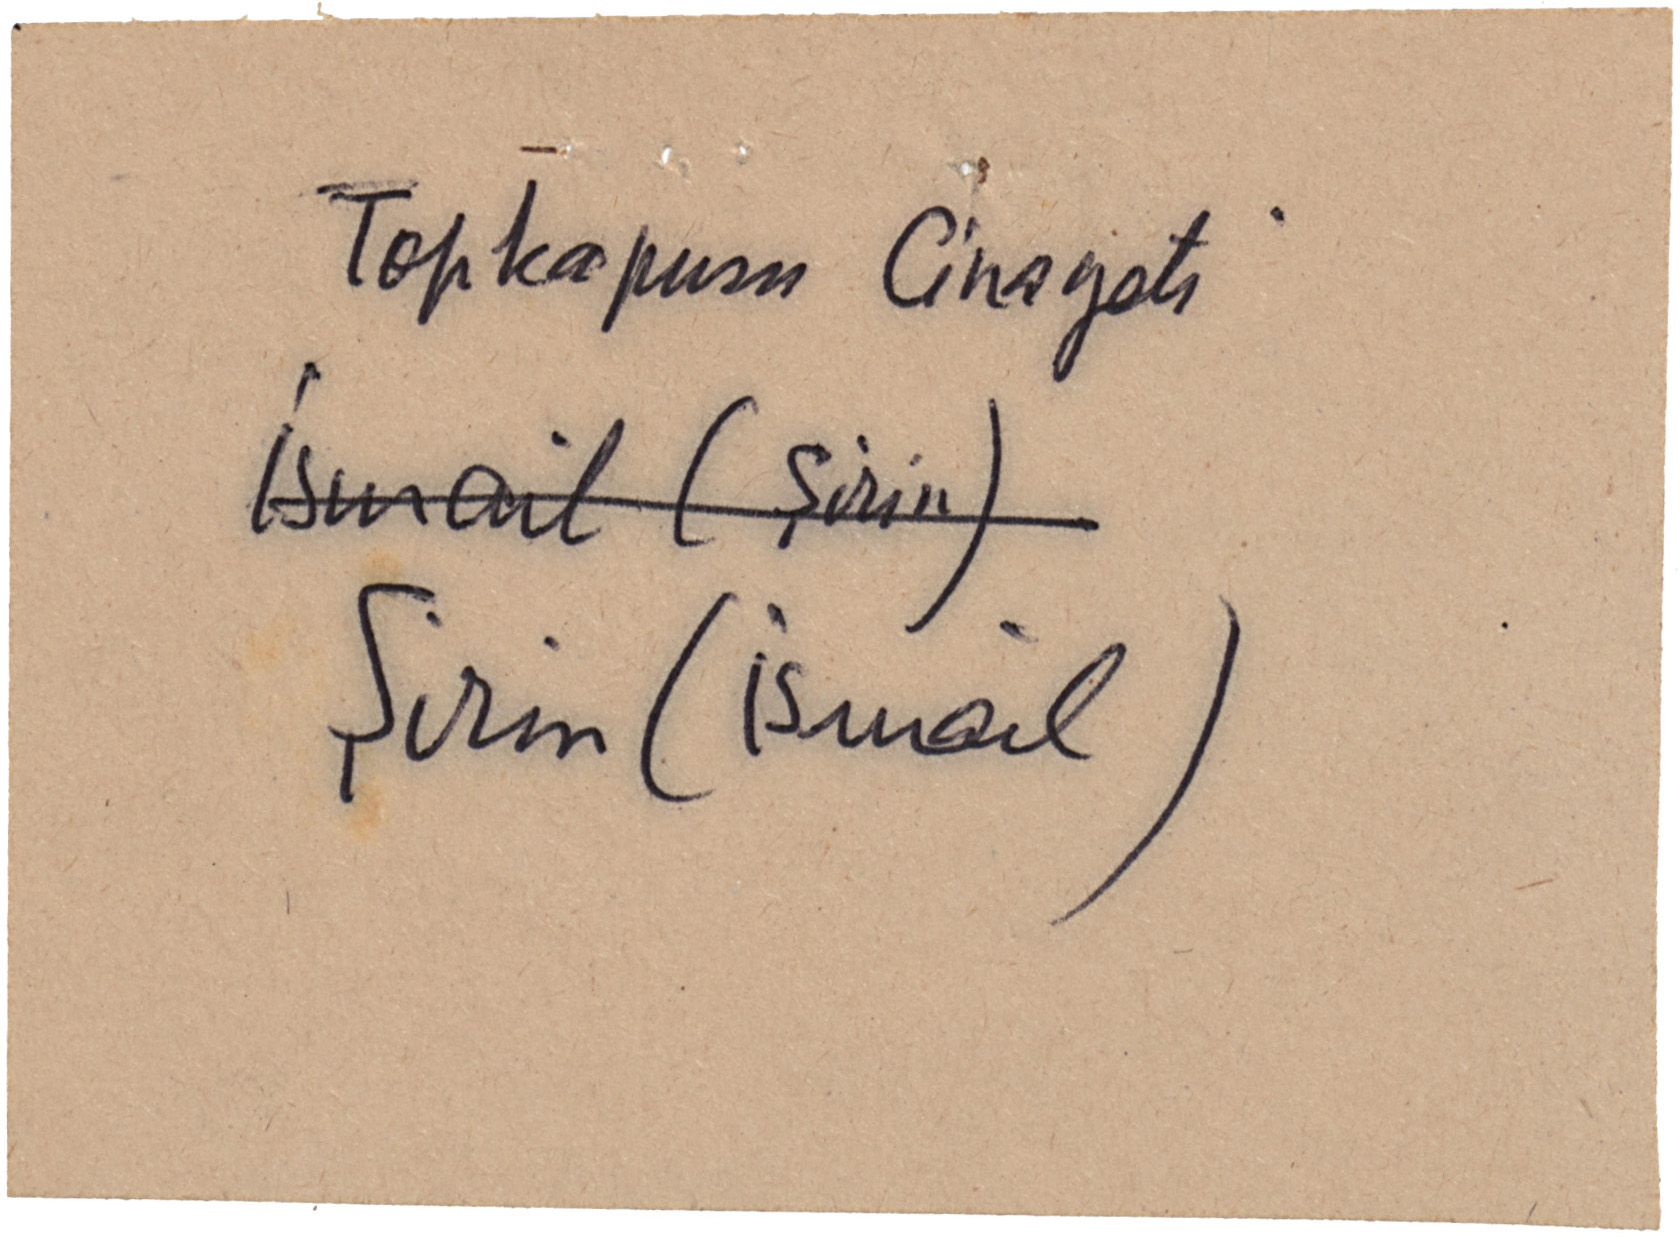 Topkapısı Cinayeti
İsmail (Şirin)
Şirin (İsmail)